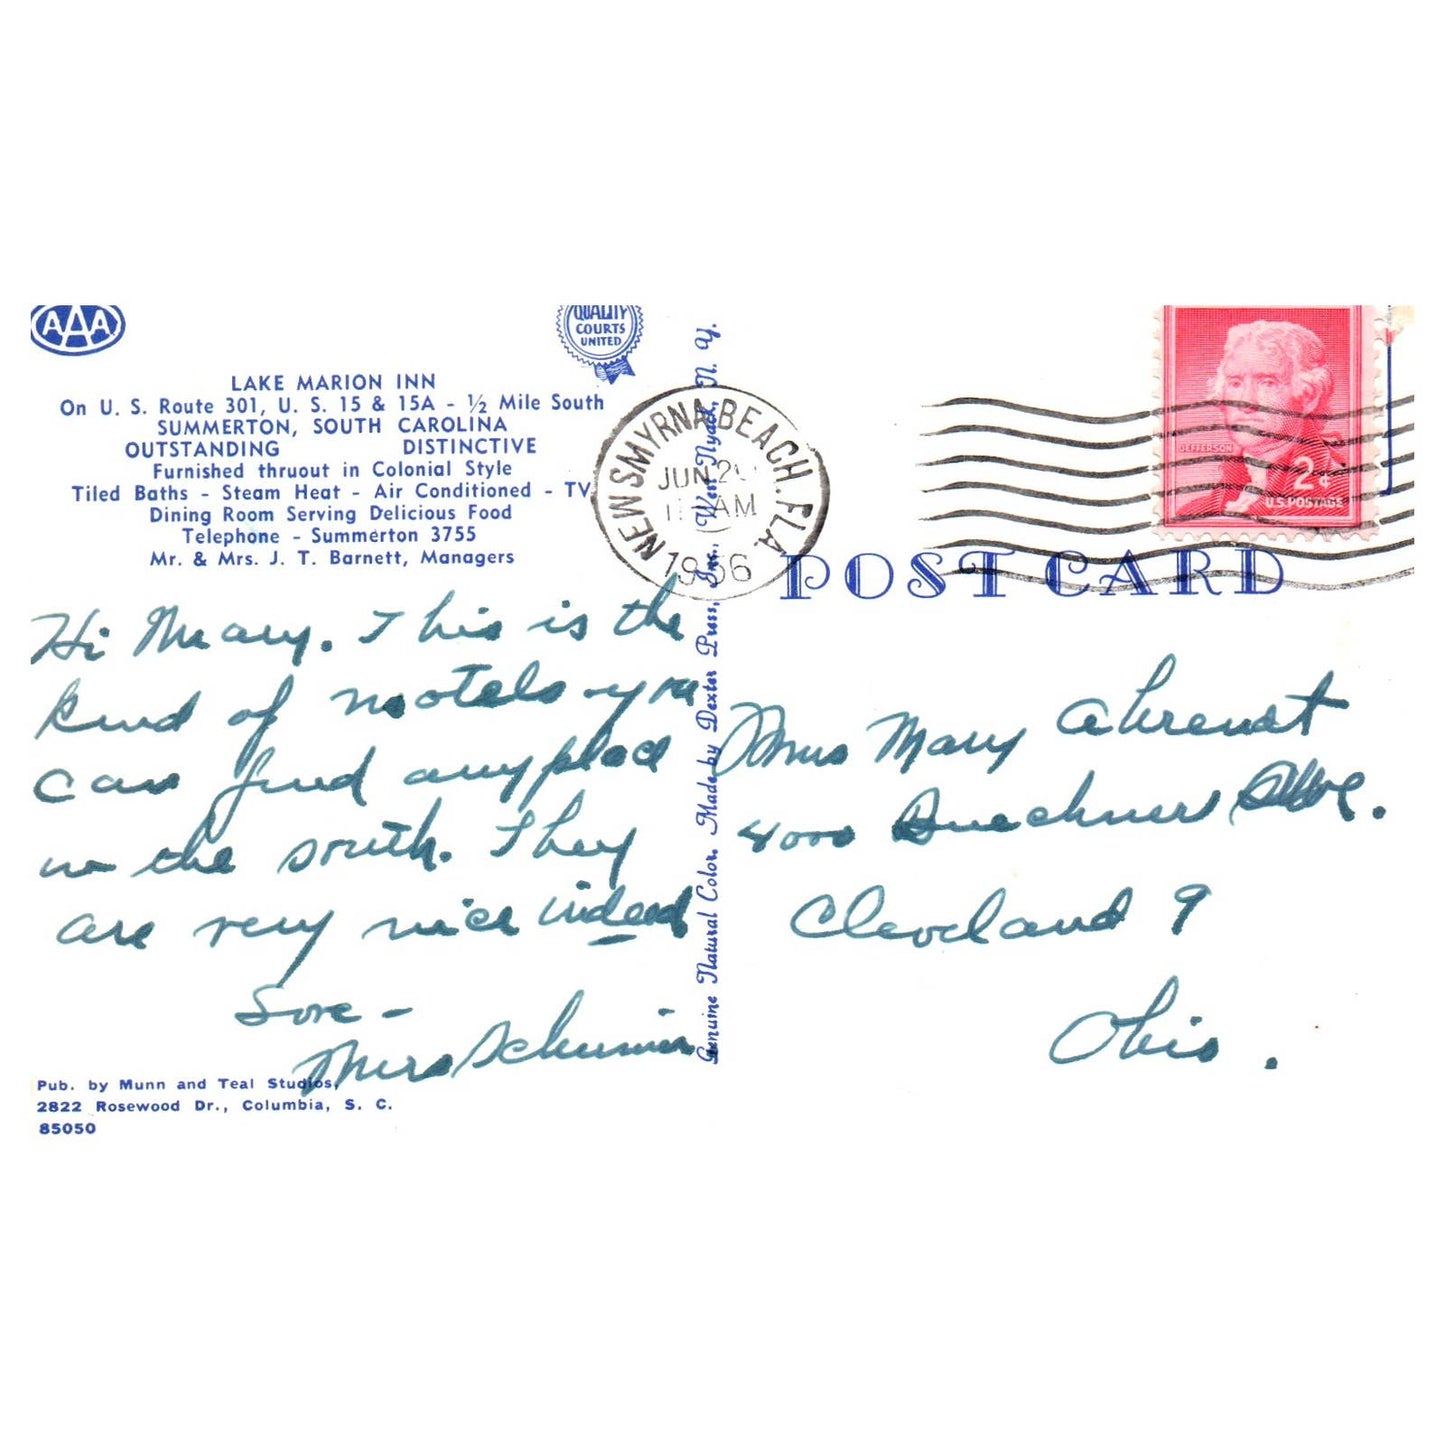 AAA
QUALITY
COURTS
UNITED
LAKE MARION INN
On U. S. Route 301, U. S. 15 & 15A - ½ Mile South
SUMMERTON, SOUTH CAROLINA
OUTSTANDING DISTINCTIVE
Furnished thruout in Colonial Style
Tiled Baths - Steam Heat - Air Conditioned - TV
Dining Room Serving Delicious Food
Telephone - Summerton 3755
Mr. & Mrs. J. T. Barnett, Managers
Hi Mary. This is the
kind of motels you
can find anyplace
in the south. They
are very nice indeed
Love -
Mrs
Pub. by Munn and Teal Studios,
2822 Rosewood Dr., Columbia, S. C.
85050
Genuine Natural Color. Made by Dexter Press, Inc., West Nyack, N. Y.
NEW SMYRNA BEACH. FLA.
JUN
AM
1956
JEFFERSON
2¢
U.S. POSTAGE
POST CARD
Mrs Mary Ahrendt
4000 Buechners Ave.
Cleveland 9
Ohio.